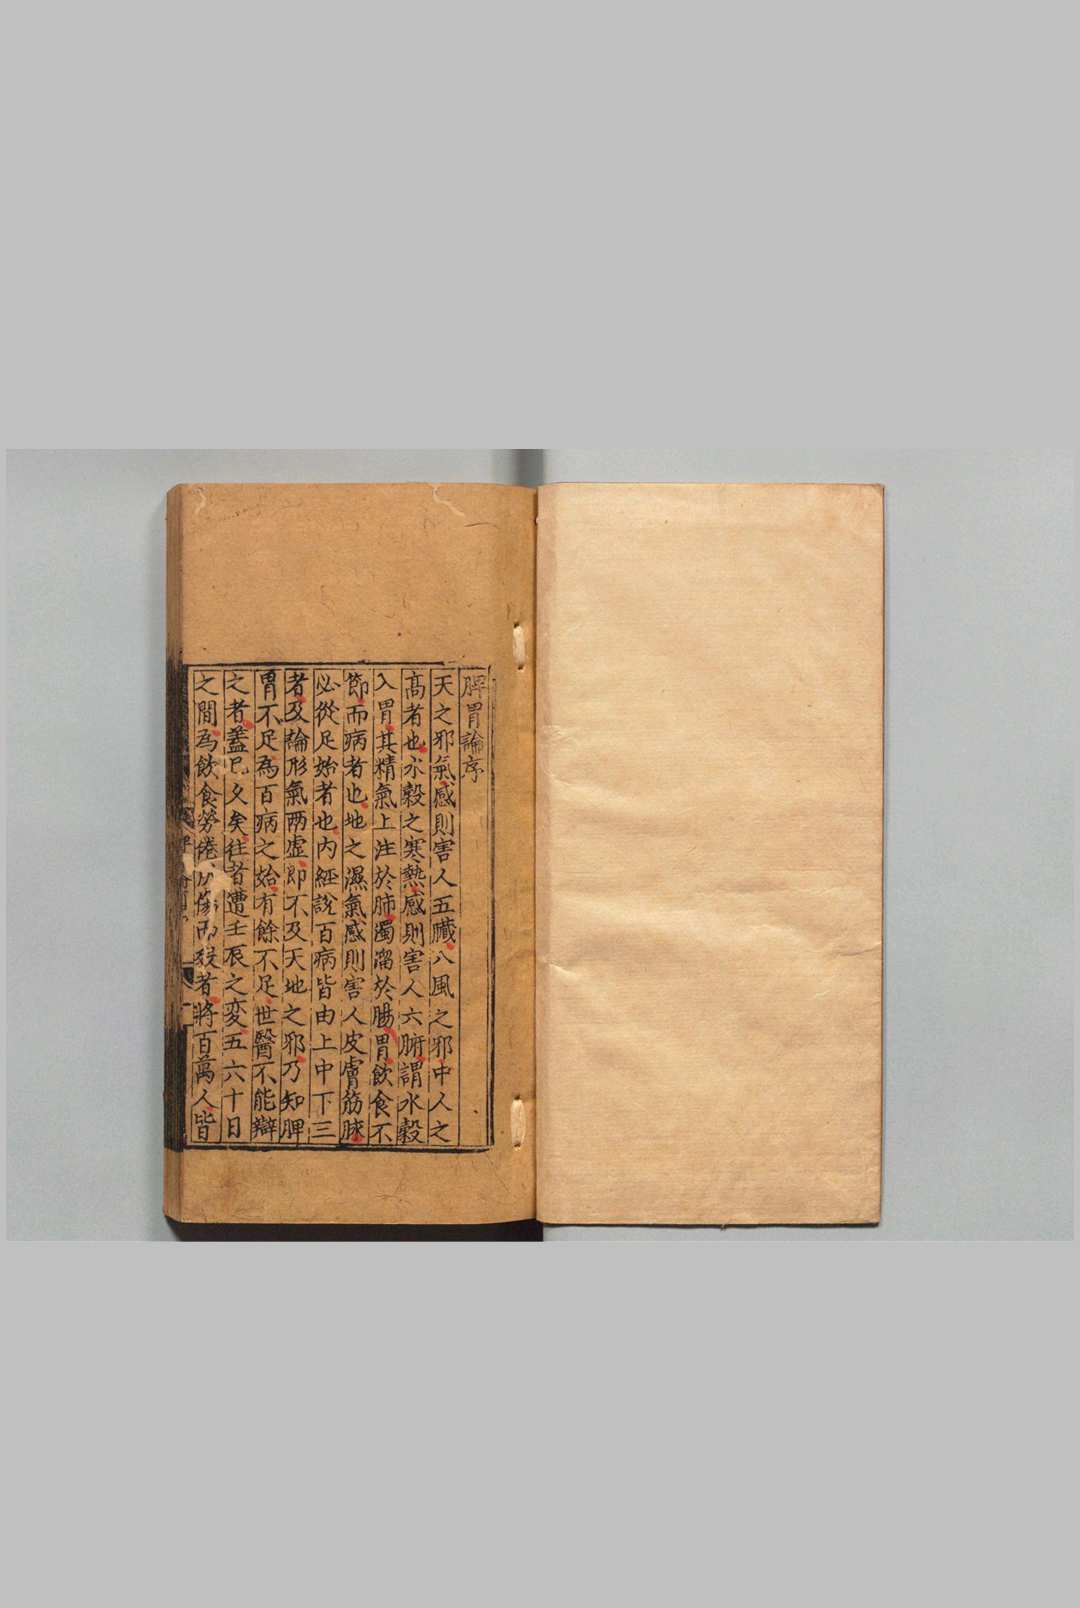 脾胃論序
天之邪氣感則害人五臓八風之邪中人之
髙者也水穀之寒熱感則害人六腑謂水穀
入胃其精氣上注於肺濁溜於腸胃飲食不
節而病者也地之濕氣感則害人皮膚筋脉
必從足始者也内經説百病皆由上中下三
者及論形氣两虚即不及天地之邪乃知脾
胃不足為百病之始有餘不足世醫不能辯
之者蓋已久矣往者遭壬辰之変五六十日
之間為飲食勞倦所傷而殁者將百萬人皆
序